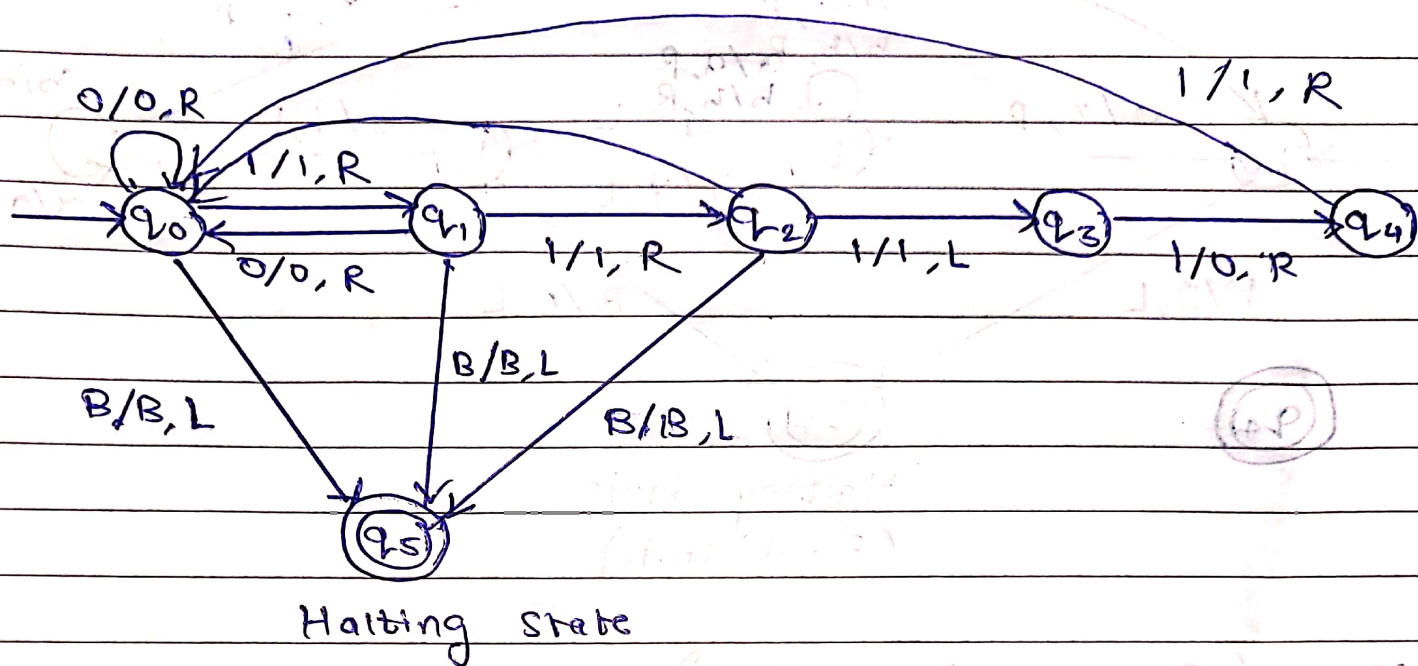 1/1, R
0/0, R
1/1, R
q0 q1 q2 q3 q4
0/0, R 1/1, R 1/1, L 1/0, R
B/B, L
B/B, L B/B, L
q5
Halting state